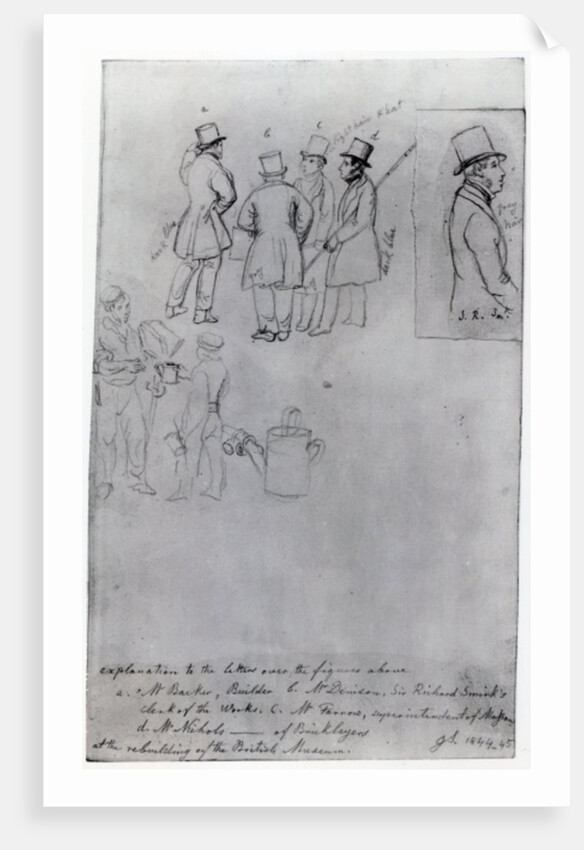 a
b
c
d
light hair & hat
dark blue
grey
dark blue
grey hair
J. R. Jnr.
explanation to the letters over the figures above
a. Mr Barker, Builder b. Mr Denison, Sir Richard Smirk's
clerk of the Works. C. Mr Farrow, superintendent of Masons
d. Mr Nichols — of Bricklayers
at the rebuilding of the British Museum.
1844-45